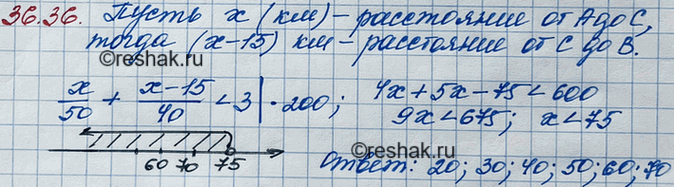 36.36. Пусть х (км) - расстояние от А до С,
тогда (х-15) км - расстояние от С до В.
х/50 + (х-15)/40 < 3 | · 200; 4х + 5х - 75 < 600
9х < 675; х < 75
60 70 75
Ответ: 20; 30; 40; 50; 60; 70
©Reshak.ru
©Reshak.ru
©Reshak.ru
©Reshak.ru